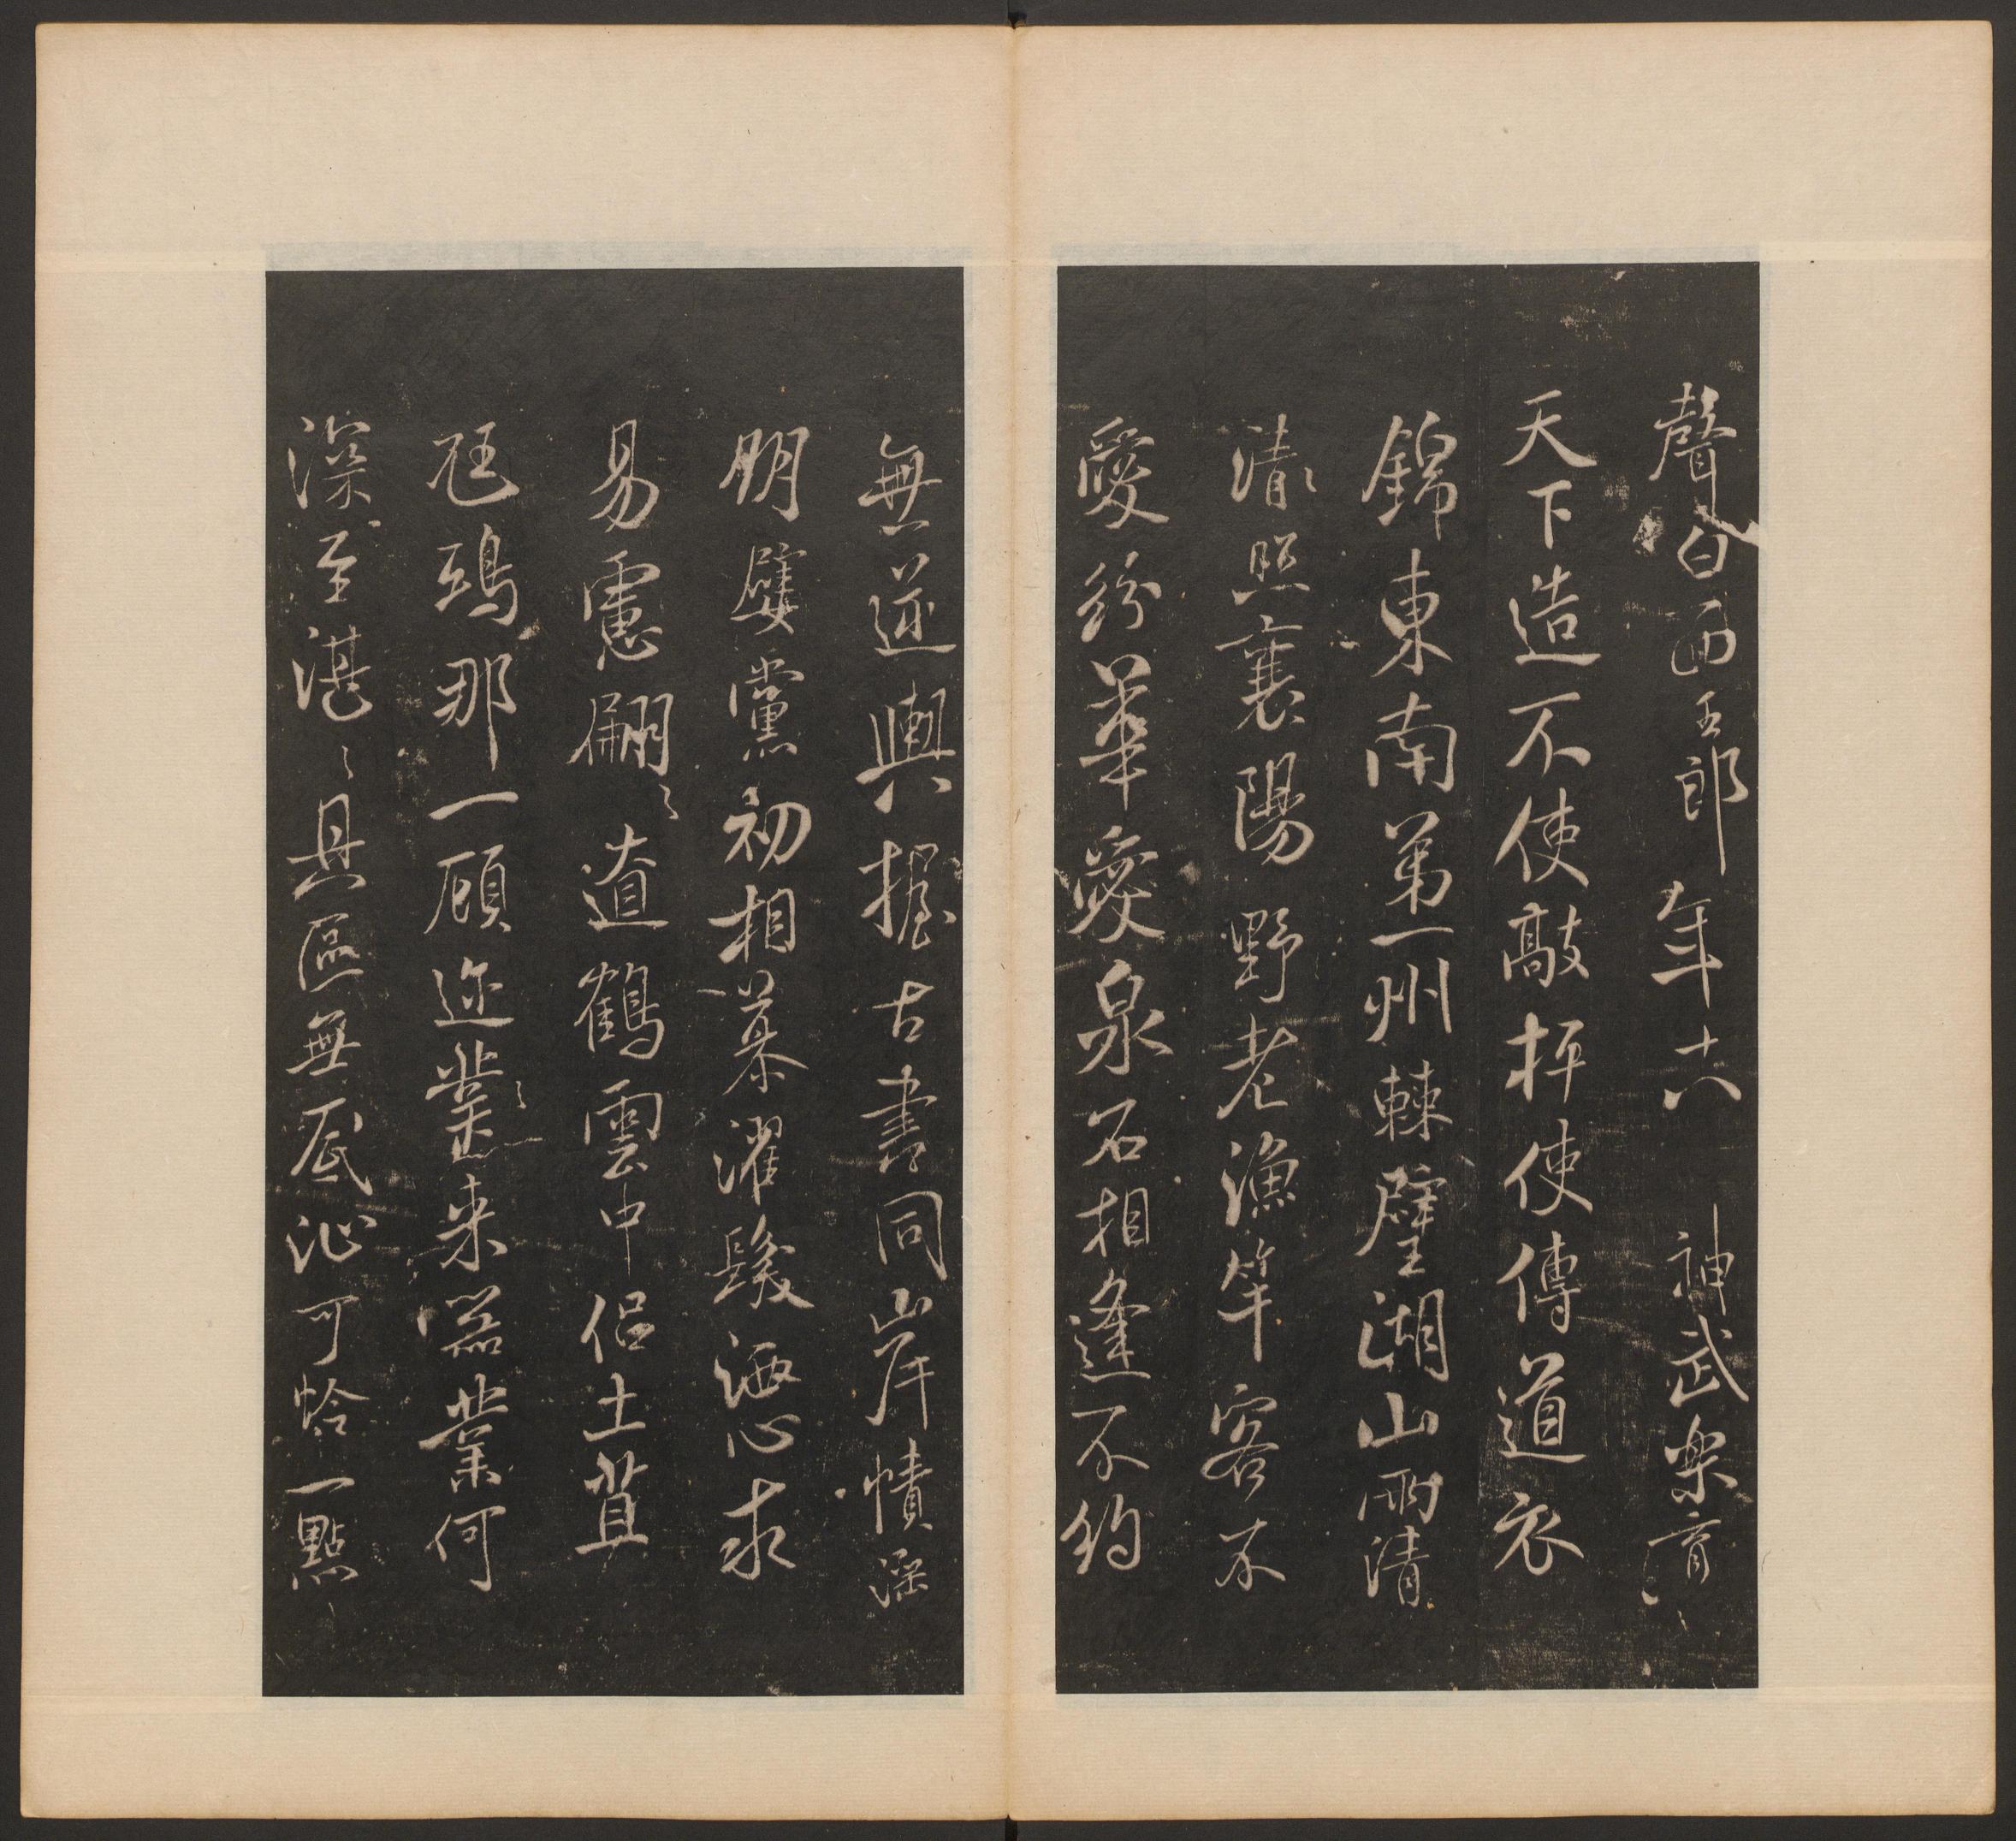 聲名西子郎年十六神武樂育
天下造不使敲枰使傳道衣
錦東南第一州棘璧湖山兩清
清照襄陽野老漁竿客不
愛紛華愛泉石相逢不約
無逆與握古書同岸幘淫
朋嬖黨初相慕濯髮洒心求
易慮翩〻遼鶴雲中侶土苴
尫鴟那一顧邇業〻來器業何
深至湛〻具區無底沚可憐一點